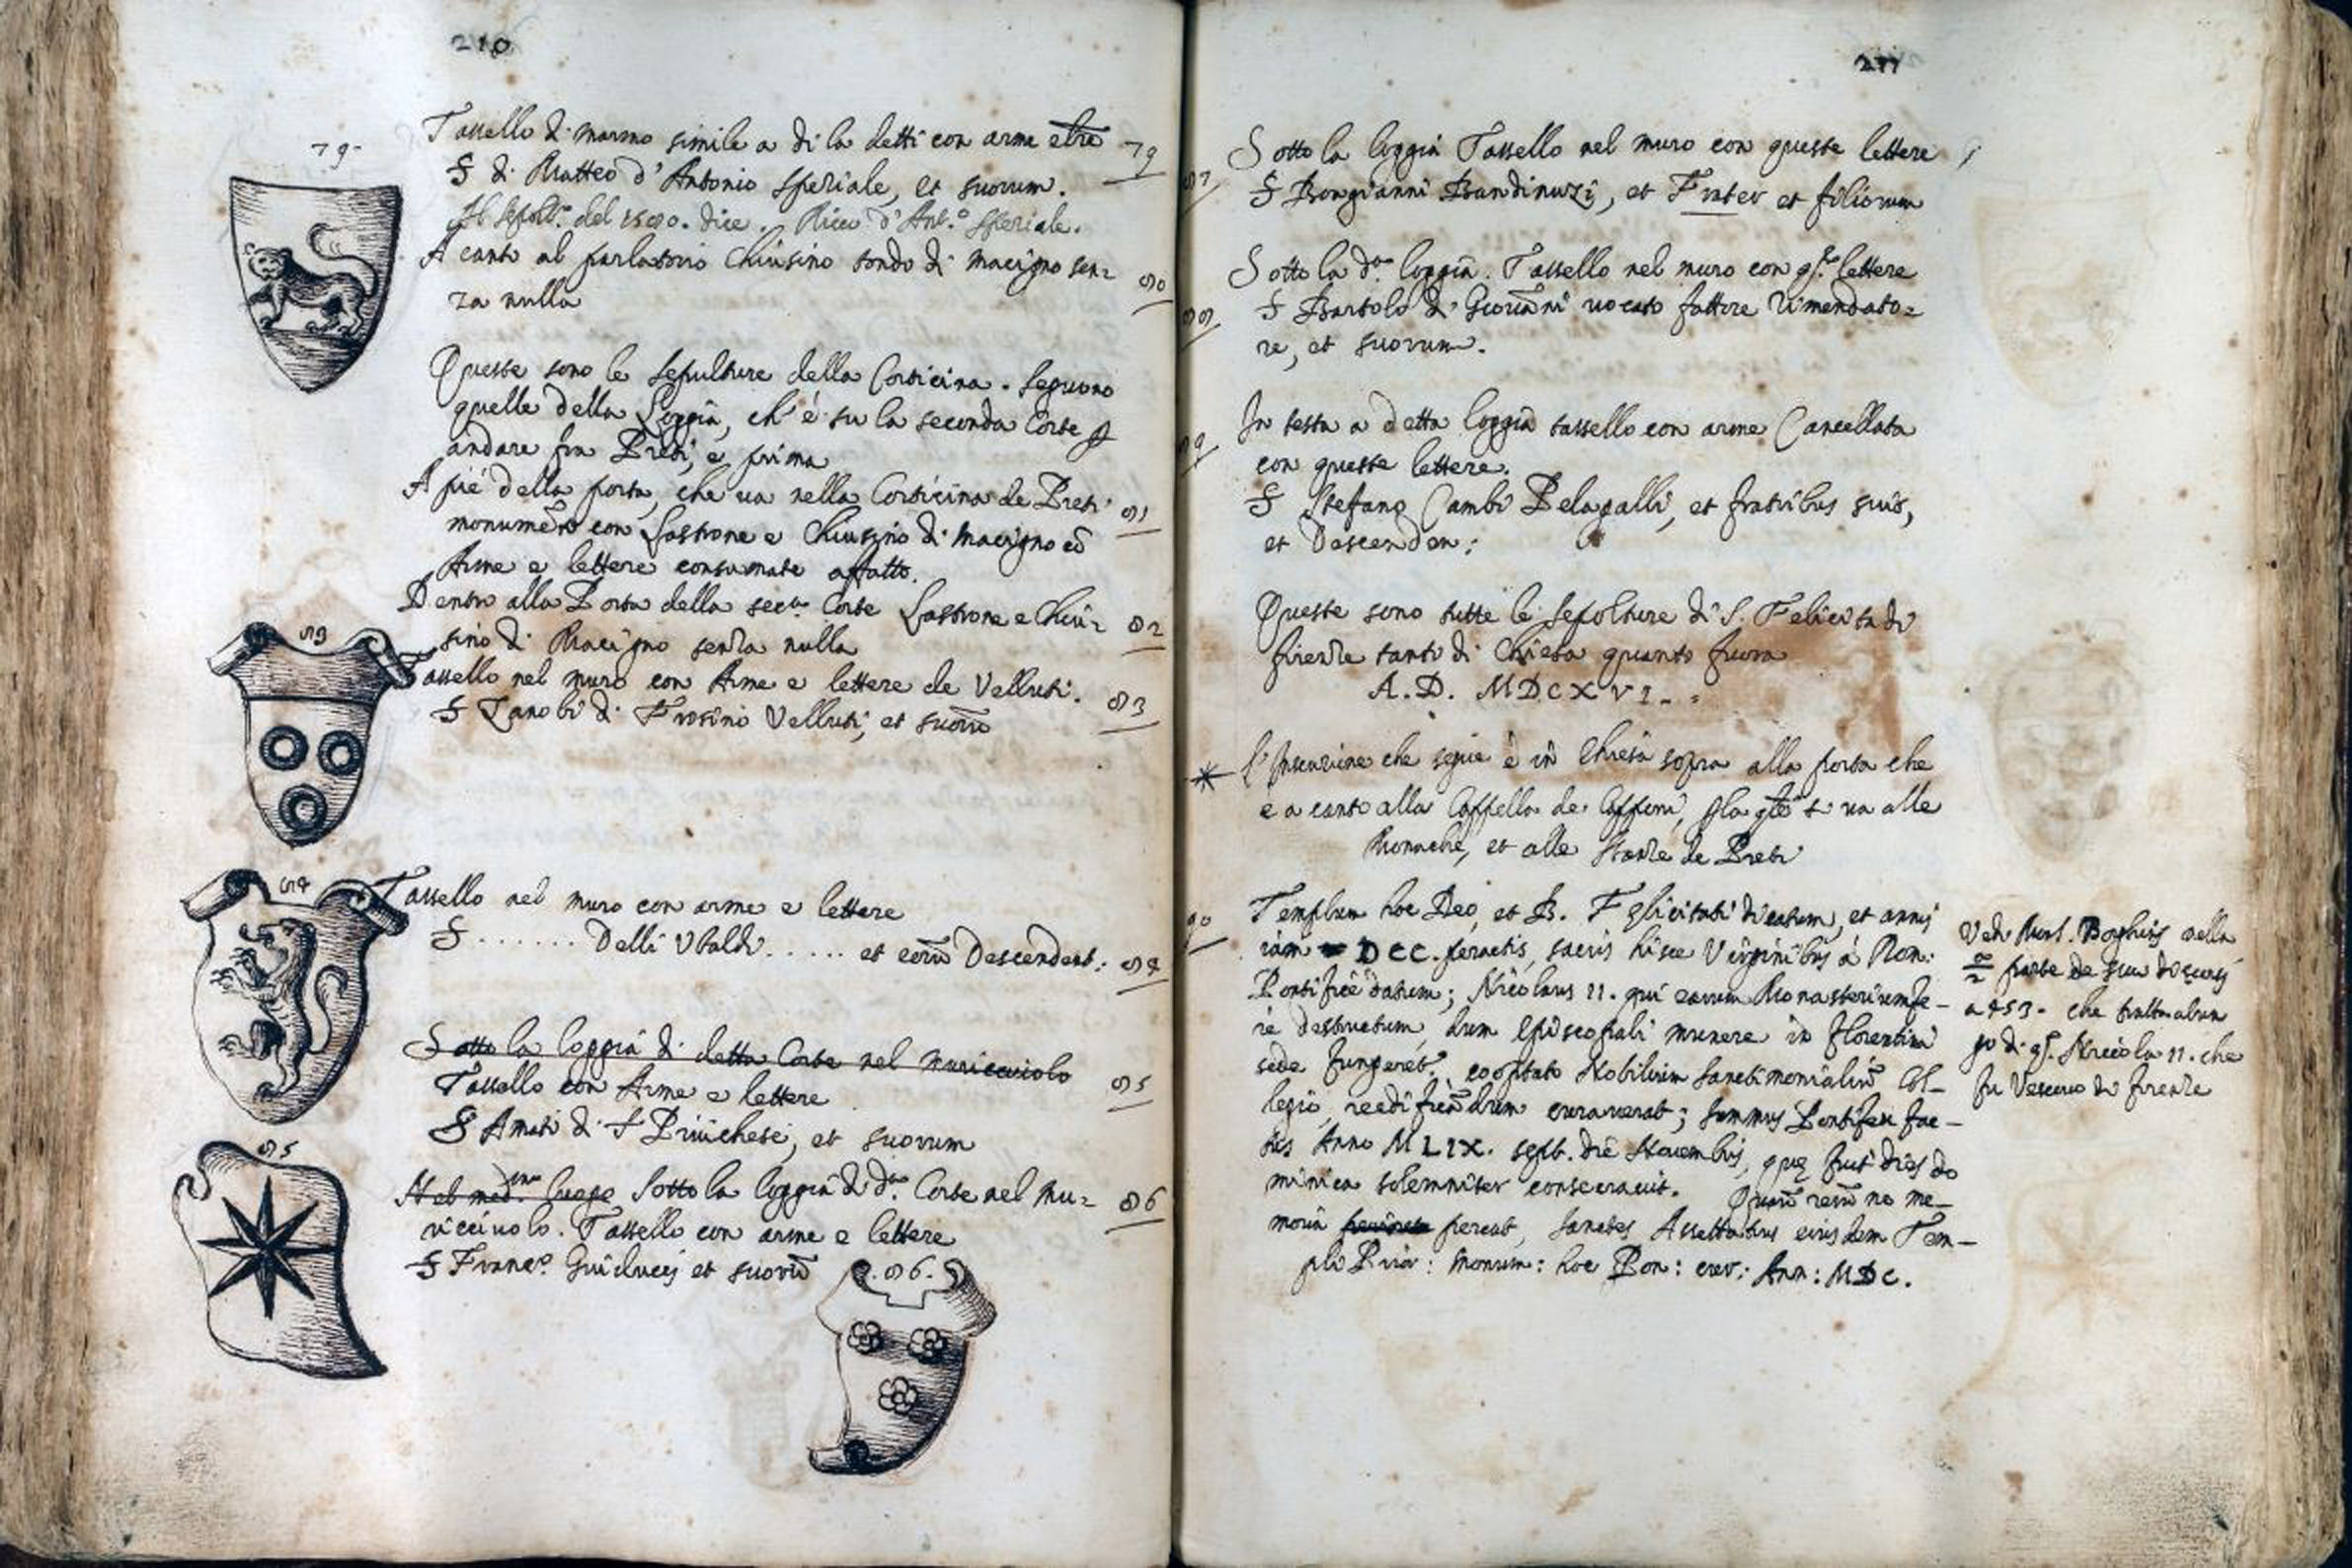 210
79
Tassello di marmo simile a di la detti con arme elre
79
S di Matteo d'Antonio speriale, et suorum.
Il sepolt.o del 1590. dice. Ricco d'Ant.o speriale.
A canto al parlatorio Chiusino tondo di macigno sen=
80
za nulla
Queste sono le sepulture della Corticina. Seguono
quelle della Loggia, ch'è su la seconda Corte p
andare fra Preti, e prima
A piè della porta, che va nella Corticina de Preti
81
monumēto con Lastrone e Chiusino di macigno cō
Arme e lettere consumate affatto.
Dentro alla Porta della sec.da Corte Lastrone e Chiu=
82
sino di Macigno senza nulla
83
Tassello nel muro con Arme e lettere de Velluti.
83
S Zanobi di Frosino Velluti, et suorū
84
Tassello nel muro con arme e lettere
S ...... Delli Ubaldi ..... et eorū Descendent:
84
Sotto la loggia di detta Corte nel muricciuolo
Tassello con Arme e lettere
85
S Amati di S Pruichesi, et suorum
85
Nel med.mo luogo Sotto la loggia di d.ta Corte nel mu=
86
ricciuolo. Tassello con arme e lettere
S Franc.o Guiducci et suorū
86.
211
Sotto la loggia Tassello nel muro con queste lettere
87
S Bongianni Bandinuzi, et Frater et filiorum
Sotto la d.ta loggia. Tassello nel muro con q.ste lettere
88
S Bartolo di Giovāni vocato fattore Rimendato=
re, et suorum.
In testa a detta loggia tassello con arme Cancellata
89
con queste lettere.
S Stefano Cambi Pelagalli, et fratribus suis,
et Descenden:
Queste sono tutte le sepolture di S. Felicita di
firenze tanto di Chiesa quanto fuora
A.D. MDCXVI.
* l'Inscrizione che segue è in Chiesa sopra alla porta che
è a canto alla Cappella de Capponi, p la qle si va alle
Monache, et alle stanze de Preti
90
Templum hoc Deo, et B. Felicitati dicatum, et annis
iam DCC. peractis, sacris hisce Virginibus à Rom:
Pontifice datum; Nicolaus II. qui earum Monasterium fe-
rè destructum, dum Episcopali munere in florentina
sede fungeret.r cooptato Nobilium sanctimonialiū Col-
legio, reedificandum curaverat; summus Pontifex fac-
tus Anno MLIX. sept. die Novembris, quę fuit dies do
minica solemniter consecravit. Quarū rerū ne me-
moria pereat, sanctes Assettatus eiusdem Tem-
pli Prior: monum: hoc Pon: cur: Ann: MDC.
Vedi Mons. Borghini nella
2 parte de suoi discorsi
a 453. che tratta a lun
go di q.sto Niccola II. che
fu Vescovo di firenze